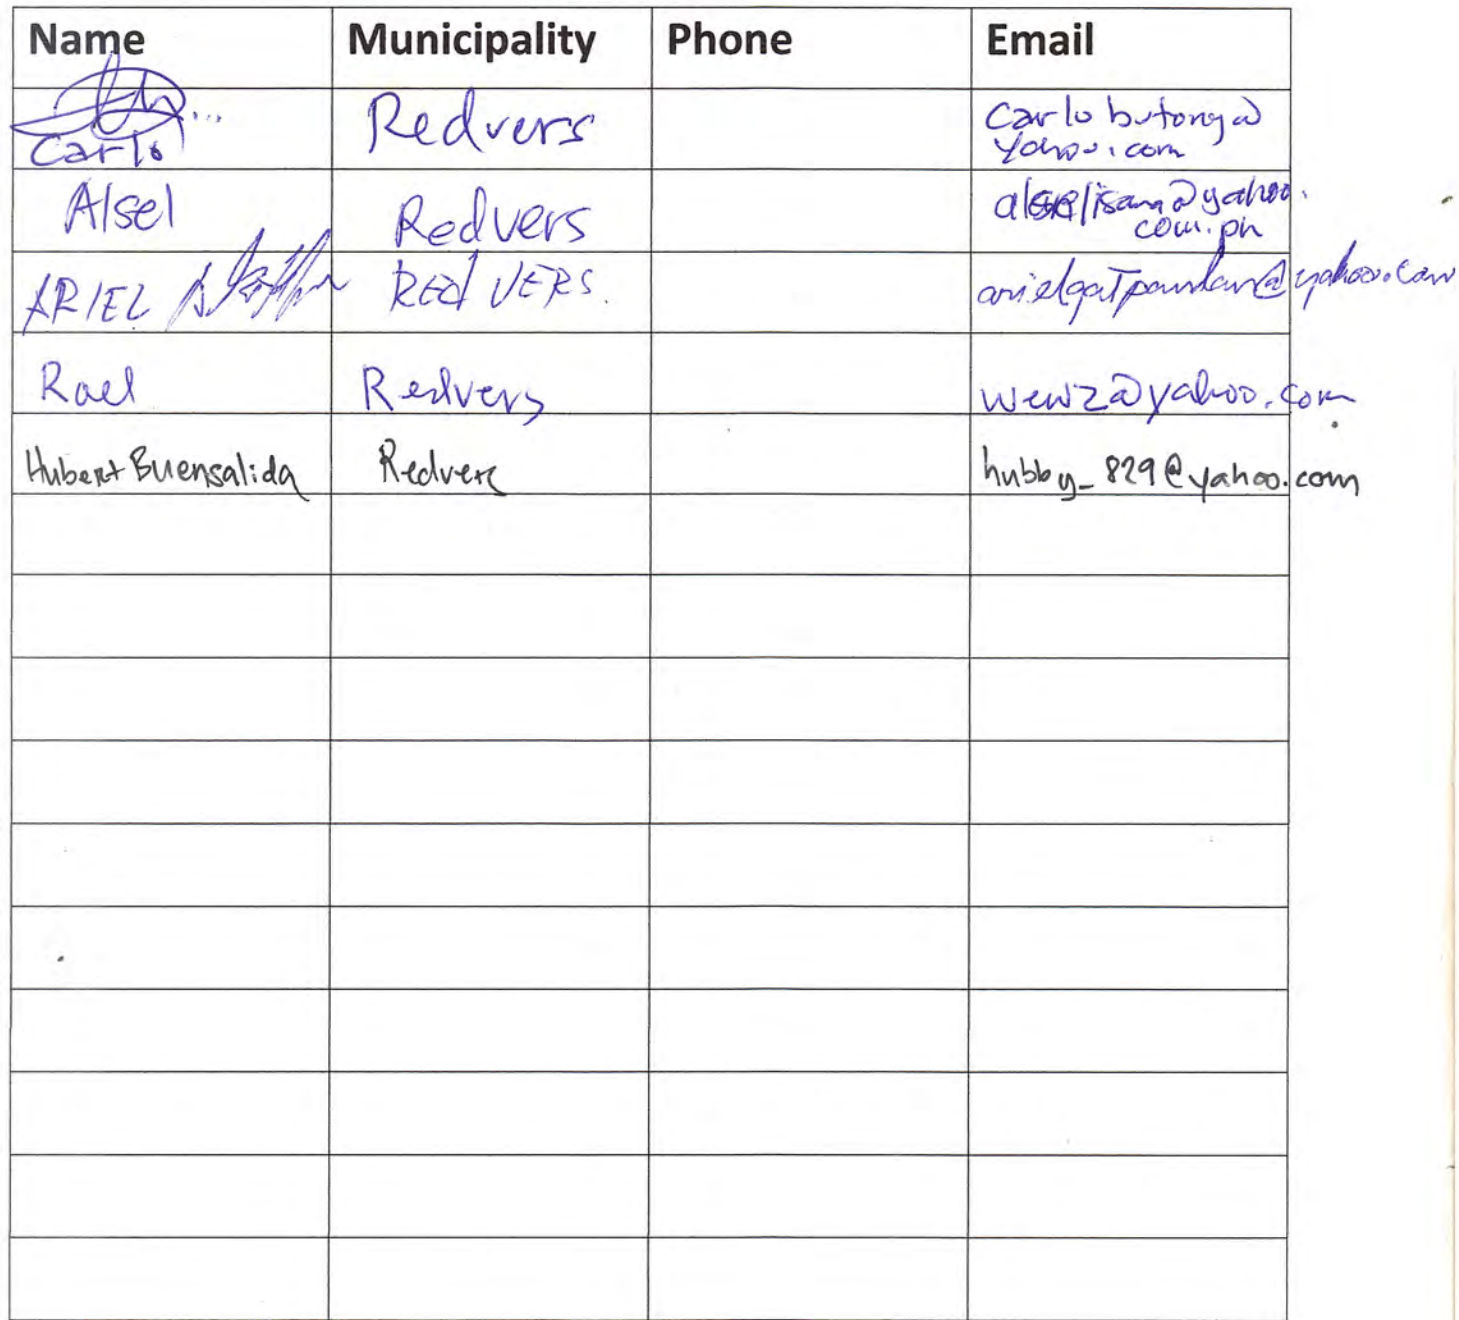 Name Municipality Phone Email
Carlo Redvers Carlobutong@
yahoo.com
Alsel Redvers @yahoo.
com.ph
ARIEL REd VERS. @yahoo.com
Rael Redvers wewz@yahoo.com
Hubert Buensalida Redvers hubby_829@yahoo.com